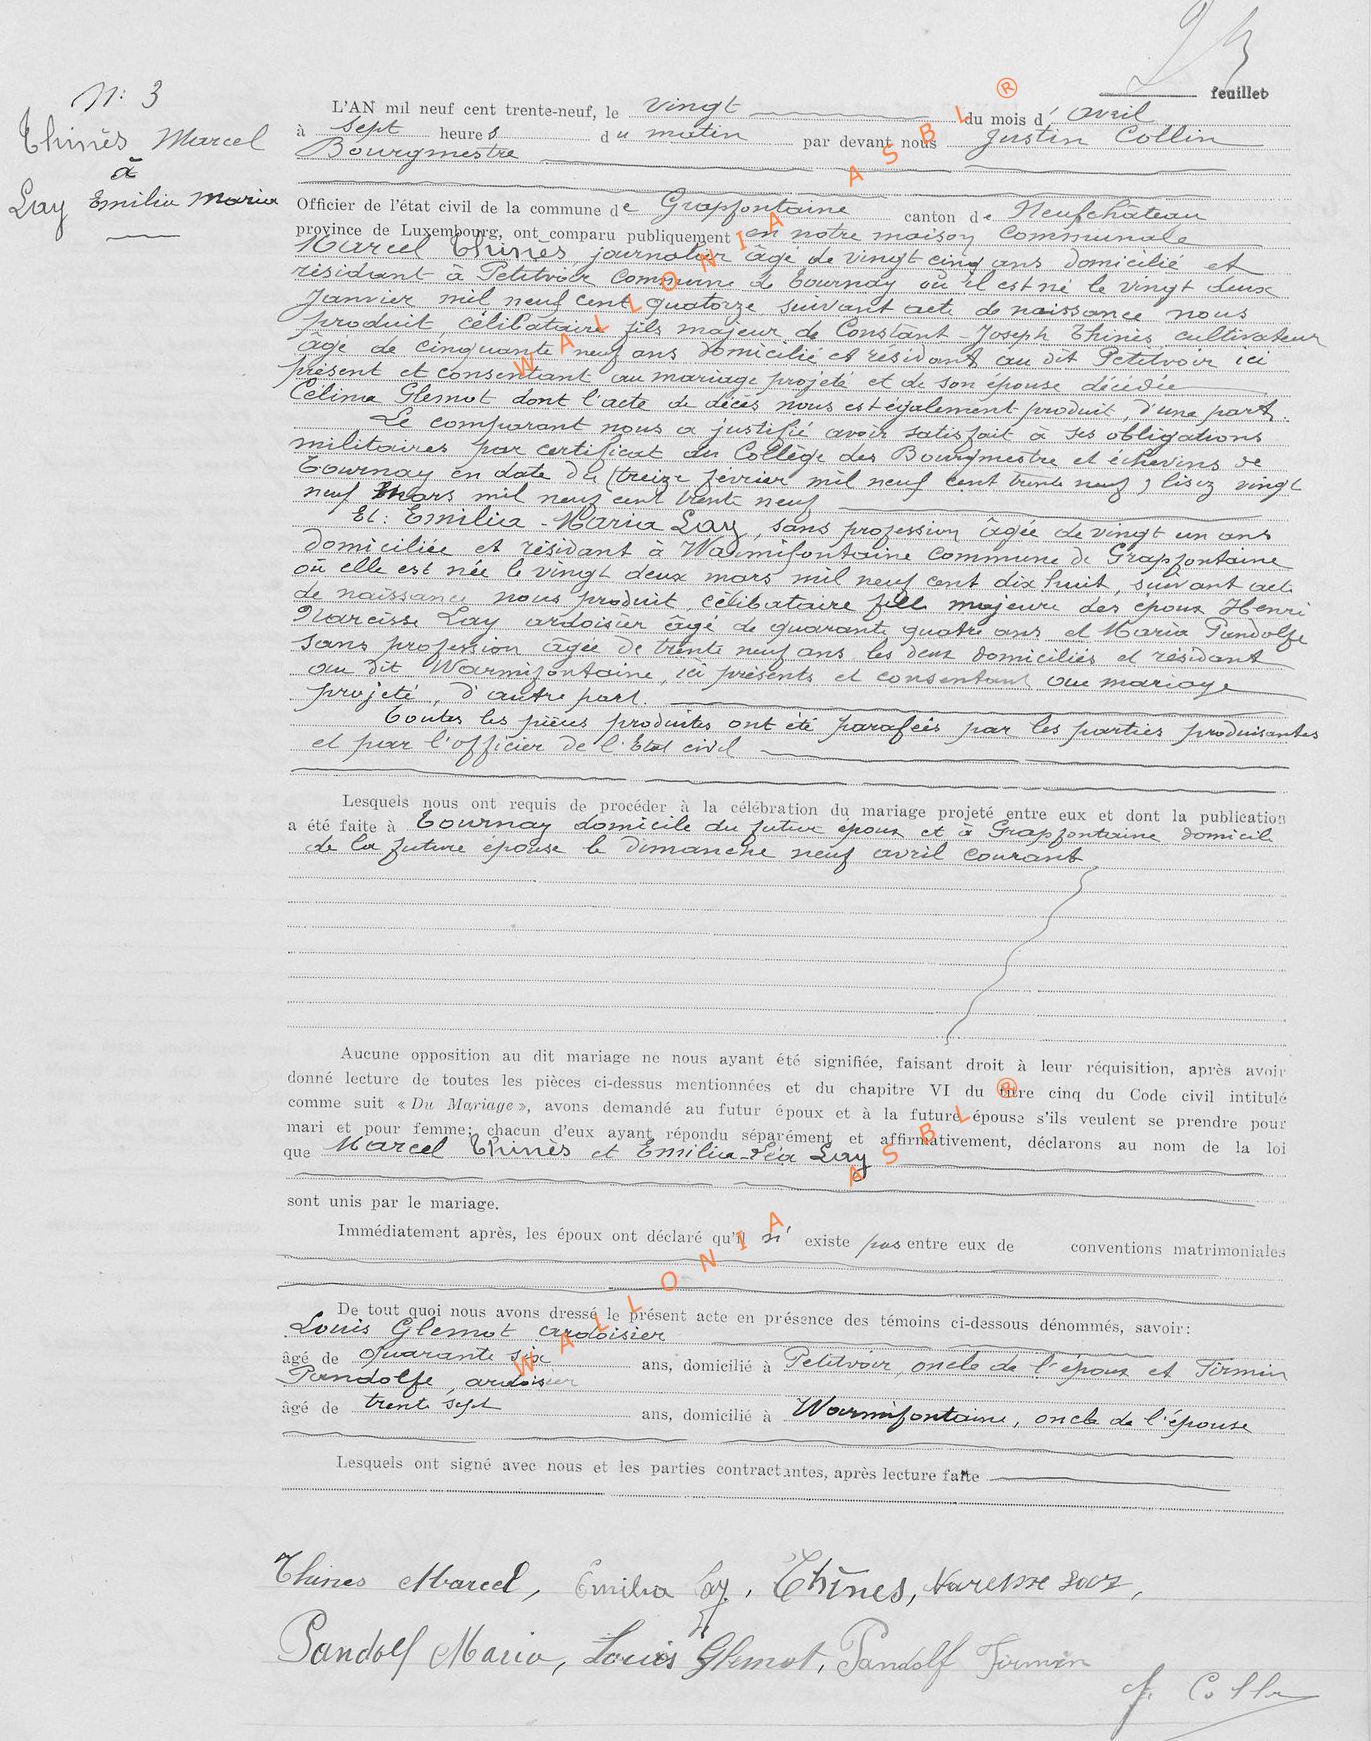 feuillet
N: 3
Thinès Marcel
à
Lay Emilia Maria
L'AN mil neuf cent trente-neuf, le vingt du mois d' avril
à sept heures du matin par devant nous Justin Collin
Bourgmestre
Officier de l'état civil de la commune de Grapfontaine canton de Neufchâteau
province de Luxembourg, ont comparu publiquement en notre maison communale
Marcel Thinès, journalier âgé de vingt cinq ans domicilié et
résidant à Petitvoir commune de Tournay où il est né le vingt deux
Janvier mil neuf cent quatorze suivant acte de naissance nous
produit, célibataire fils majeur de Constant-Joseph Thinès, cultivateur
âgé de cinquante neuf ans domicilié et résidant au dit Petitvoir ici
présent et consentant au mariage projeté et de son épouse décédée
Célina Glemot dont l'acte de décès nous est également produit, d'une part.
Le comparant nous a justifié avoir satisfait à ses obligations
militaires par certificat du Collège des Bourgmestre et échevins de
Tournay en date du (treize février mil neuf cent trente neuf) lisez vingt
neuf mars mil neuf cent trente neuf
Et: Emilia-Maria Lay, sans profession âgée de vingt un ans
domiciliée et résidant à Warmifontaine commune de Grapfontaine
où elle est née le vingt deux mars mil neuf cent dix huit, suivant acte
de naissance nous produit, célibataire fille majeure des époux Henri
Narcisse Lay ardoisier âgé de quarante quatre ans et Maria Pandolfe
sans profession âgée de trente neuf ans les deux domiciliés et résidant
au dit Warmifontaine, ici présents et consentant au mariage
projeté, d'autre part.
Toutes les pièces produites ont été parafées par les parties produisantes
et par l'officier de l'Etat civil
Lesquels nous ont requis de procéder à la célébration du mariage projeté entre eux et dont la publication
a été faite à Tournay domicile du futur époux et à Grapfontaine domicile
de la future épouse le dimanche neuf avril courant
Aucune opposition au dit mariage ne nous ayant été signifiée, faisant droit à leur réquisition, après avoir
donné lecture de toutes les pièces ci-dessus mentionnées et du chapitre VI du titre cinq du Code civil intitulé
comme suit « Du Mariage », avons demandé au futur époux et à la future épouse s'ils veulent se prendre pour
mari et pour femme; chacun d'eux ayant répondu séparément et affirmativement, déclarons au nom de la loi
que Marcel Thinès et Emilia Lay
sont unis par le mariage.
Immédiatement après, les époux ont déclaré qu'il n' existe pas entre eux de conventions matrimoniales
De tout quoi nous avons dressé le présent acte en présence des témoins ci-dessous dénommés, savoir:
Louis Glemot ardoisier
âgé de quarante six ans, domicilié à Petitvoir, oncle de l'époux et Firmin
Pandolfe, ardoisier
âgé de trente sept ans, domicilié à Warmifontaine, oncle de l'épouse
Lesquels ont signé avec nous et les parties contractantes, après lecture faite
Thines Marcel, Emilia Lay, Thînes,
Pandolf Maria, Louis Glemot, Pandolf Firmin
WALLONIA ASBL ®
WALLONIA ASBL ®